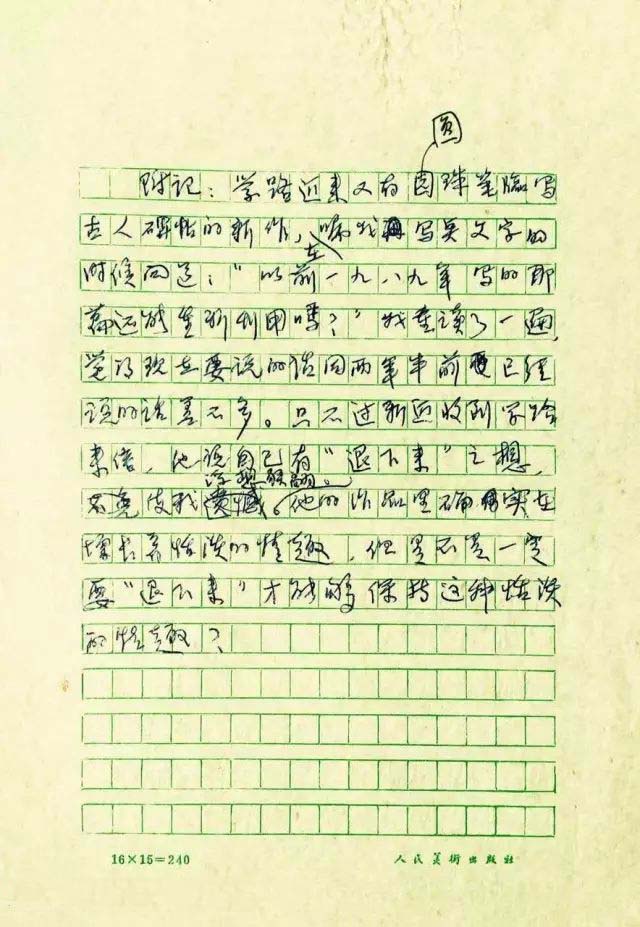 圆
附记：学路近来又有圆珠笔临写
古人碑帖的新作，嘱我写文字的
在
时候问道：“以前一九八九年写的那
篇还能重新利用吗？”我重读了一遍，
觉得现在要说的话同两年半前已经
说的话差不多。只不过新近收到学路
来信，他说自己有“退下来”之想，
浮想联翩。
使我遗憾。他的作品里确实在
增长着恬淡的情趣，但是不是一定
要“退下来”才能够保持这种恬淡
的情趣？
16×15=240
人民美術出版社